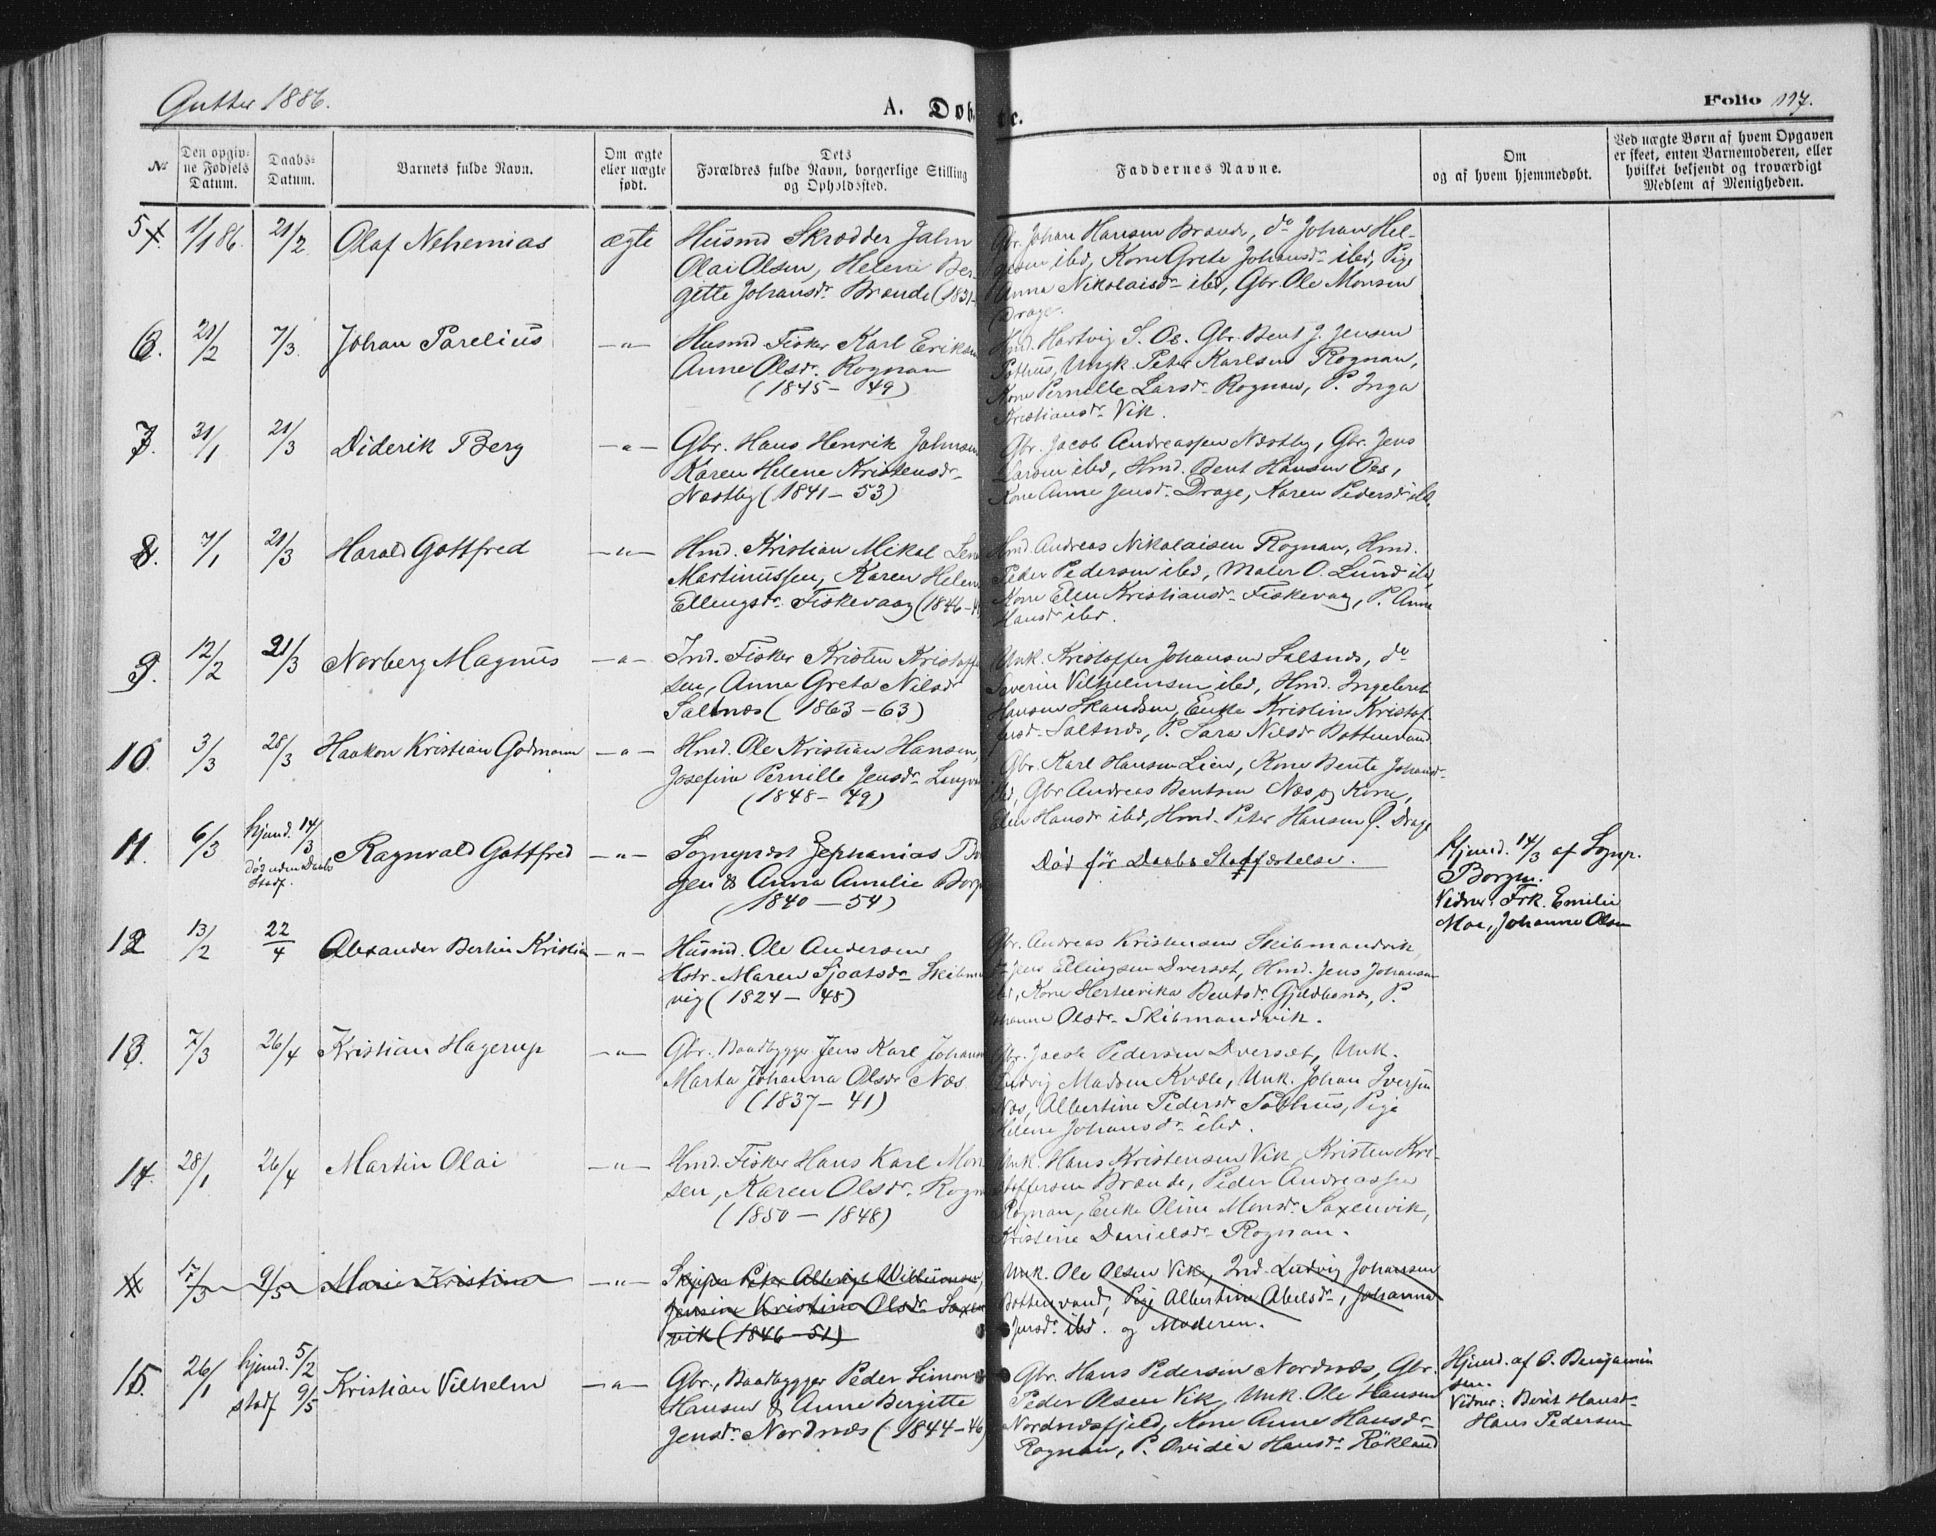 Gutter 1886.
A. Døb
te.
Folio 117.
No
Den opgiv-
ne Fødsels
Datum.
Daabs-
Datum.
Barnets fulde Navn.
Om ægte
eller uægte
født.
Dets
Forældres fulde Navn, borgerlige Stilling
og Opholdssted.
Faddernes Navne.
Om
og af hvem hjemmedøbt.
Ved uægte Børn af hvem Opgaven
er skeet, enten Barnemoderen, eller
hvilket bekjendt og troværdigt
Medlem af Menigheden.
5. 1/1 86. 21/2 Olaf Nehemias ægte
Husmd Skrædder Jahn
Olai Olsen, Helene Ber-
gitte Johansdr Brænde (1831-
Gbr. Johan Hansen Brænde, do Johan Hel-
gesen ibd, Kone Grete Johansdr ibd, Pige
Anna Nikolaisdr ibd, Gbr. Ole Monsen
Drage.
6. 21/2 7/3 Johan Parelius —"—
Husmd Fisker Karl Eriksen
Anne Olsdr. Rognan
(1845 - 49)
Hmd. Hartvig S. Os. Gbr. Bent J. Jensen
Pothus, Ungk. Peter Karlsen Rognan,
Kone Pernille Larsdr Rognan, P. Inga
Kristiansdr Vik.
7. 31/1 21/3 Diderik Berg —"—
Gbr. Hans Henrik Jahnsen
Karen Helene Kristensdr
Næstby (1841 - 53)
Gbr. Jacob Andreassen Næstby, Gbr. Jens
Larsen ibd, Hmd. Bent Hansen Os,
Kone Anne Jensdr. Drage, Karen Pedersdr ibd.
8. 7/1 21/3 Harald Gottfred —"—
Hmd. Kristian Mikal
Martinussen, Karen Helene
Ellingsdr Fiskevaag (1846-
Hmd. Andreas Nikolaisen Rognan, Hmd.
Peder Pedersen ibd, Maler O. Lund ibd,
Kone Ellen Kristiansdr Fiskevaag, P. Anne
Hansdr ibd.
9. 12/2 21/3 Norberg Magnus —"—
Ind. Fisker Kristen Kristoffer-
sen, Anna Greta Nilsdr
Saltnæs (1863 - 63)
Unk. Kristoffer Johansen Saltnæs, do
Severin Vilhelmsen ibd, Hmd. Ingebret
Hansen Skandsen, Enke Kristin Kristof-
fersdr Saltnæs, P. Sara Nilsdr Bottenvand
10. 3/3 28/3 Haakon Kristian Godmann —"—
Hmd. Ole Kristian Hansen,
Josefine Pernille Jensdr
(1848 - 49)
Gbr. Karl Hansen Lien, Kone Bente Johansdr
ibd, Gbr Andreas Bentsen Næs og Kone,
Ellen Hansdr ibd, Hmd. Peter Hansen Ø. Drage
11. 6/3 hjmd. 14/3
død uden Daabs
Stadf.
Ragnvald Gottfred —"—
Sognepræst Zephanias Bor
gen & Anna Amalie Borgen
(1840 — 54)
Død før Daabs Stadfæstelse.
Hjmd. 14/3 af Sognp.
Borgen.
Vidner: Frk. Emilie
Moe, Johanne Olsen
12 13/2 22/4 Alexander Bertin Kristian —"—
Husmd. Ole Andersen
Hstr. Maren Sjoatsdr Skibmn
vig (1824 - 48)
Gbr. Andreas Kristensen Skibmandvik,
Jens Ellingsen Dverset, Hmd. Jens Johansen
ibd, Kone Bentsdr P.
Johanne Olsdr. Skibmandvik.
13. 7/3 26/4 Kristian Hagerup —"—
Gbr. Baadbygger Jens Karl Johansen
Marta Johanna Olsdr Næs
(1837 - 41)
Gbr. Jacob Pedersen Dverset, Unk.
Ludvig Madsen Kvæle, Unk. Johan Iversen
Næs, Albertine Pedersdr Pothus, Pige
Helene Johansdr ibd.
14. 28/1 26/4 Martin Olai —"—
Hmd. Fisker Hans Karl Mon
sen, Karen Olsdr. Rognan
(1850 - 1848)
Unk. Hans Kristensen Vik, Kristen Kri-
stoffersen Brænde, Peder Andreassen
Rognan, Enke Oline Monsdr Saxenvik,
Kristine Danielsdr Rognan.
17/3 9/5 Marie Kristine —"—
Skipper Peter Albrigt Willumsen,
Jensine Kristine Olsdr Saxen
vik (1846 - 51)
Unk. Ole Olsen Vik, Ind. Ludvig Johansen
Bottenvand, Pige Albertine Abelsdr, Johanna
Jensdr ibd. og Moderen.
15. 26/1 hjmd. 5/2
stadf 9/5
Kristian Vilhelm —"—
Gbr., Baadbygger Peder Simon
Hansen & Anne Bergitte
Jensdr. Nordnæs (1844 - 46)
Gbr. Hans Pedersen Nordnæs, Gbr.
Peder Olsen Vik, Unk. Ole Hansen
Nordnæsfjeld, Kone Anne Hansdr
Rognan, P. Ovidia Hansdr Røkland
Hjmd. af O. Benjamin
sen.
Vidner: Berit Hansdr
Hans Pedersen